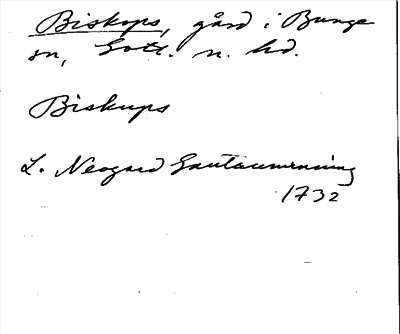 Biskops, gård i Bunge
sn, Gotl. n. hd.
Biskups
L. Neogard Gautauminning
1732